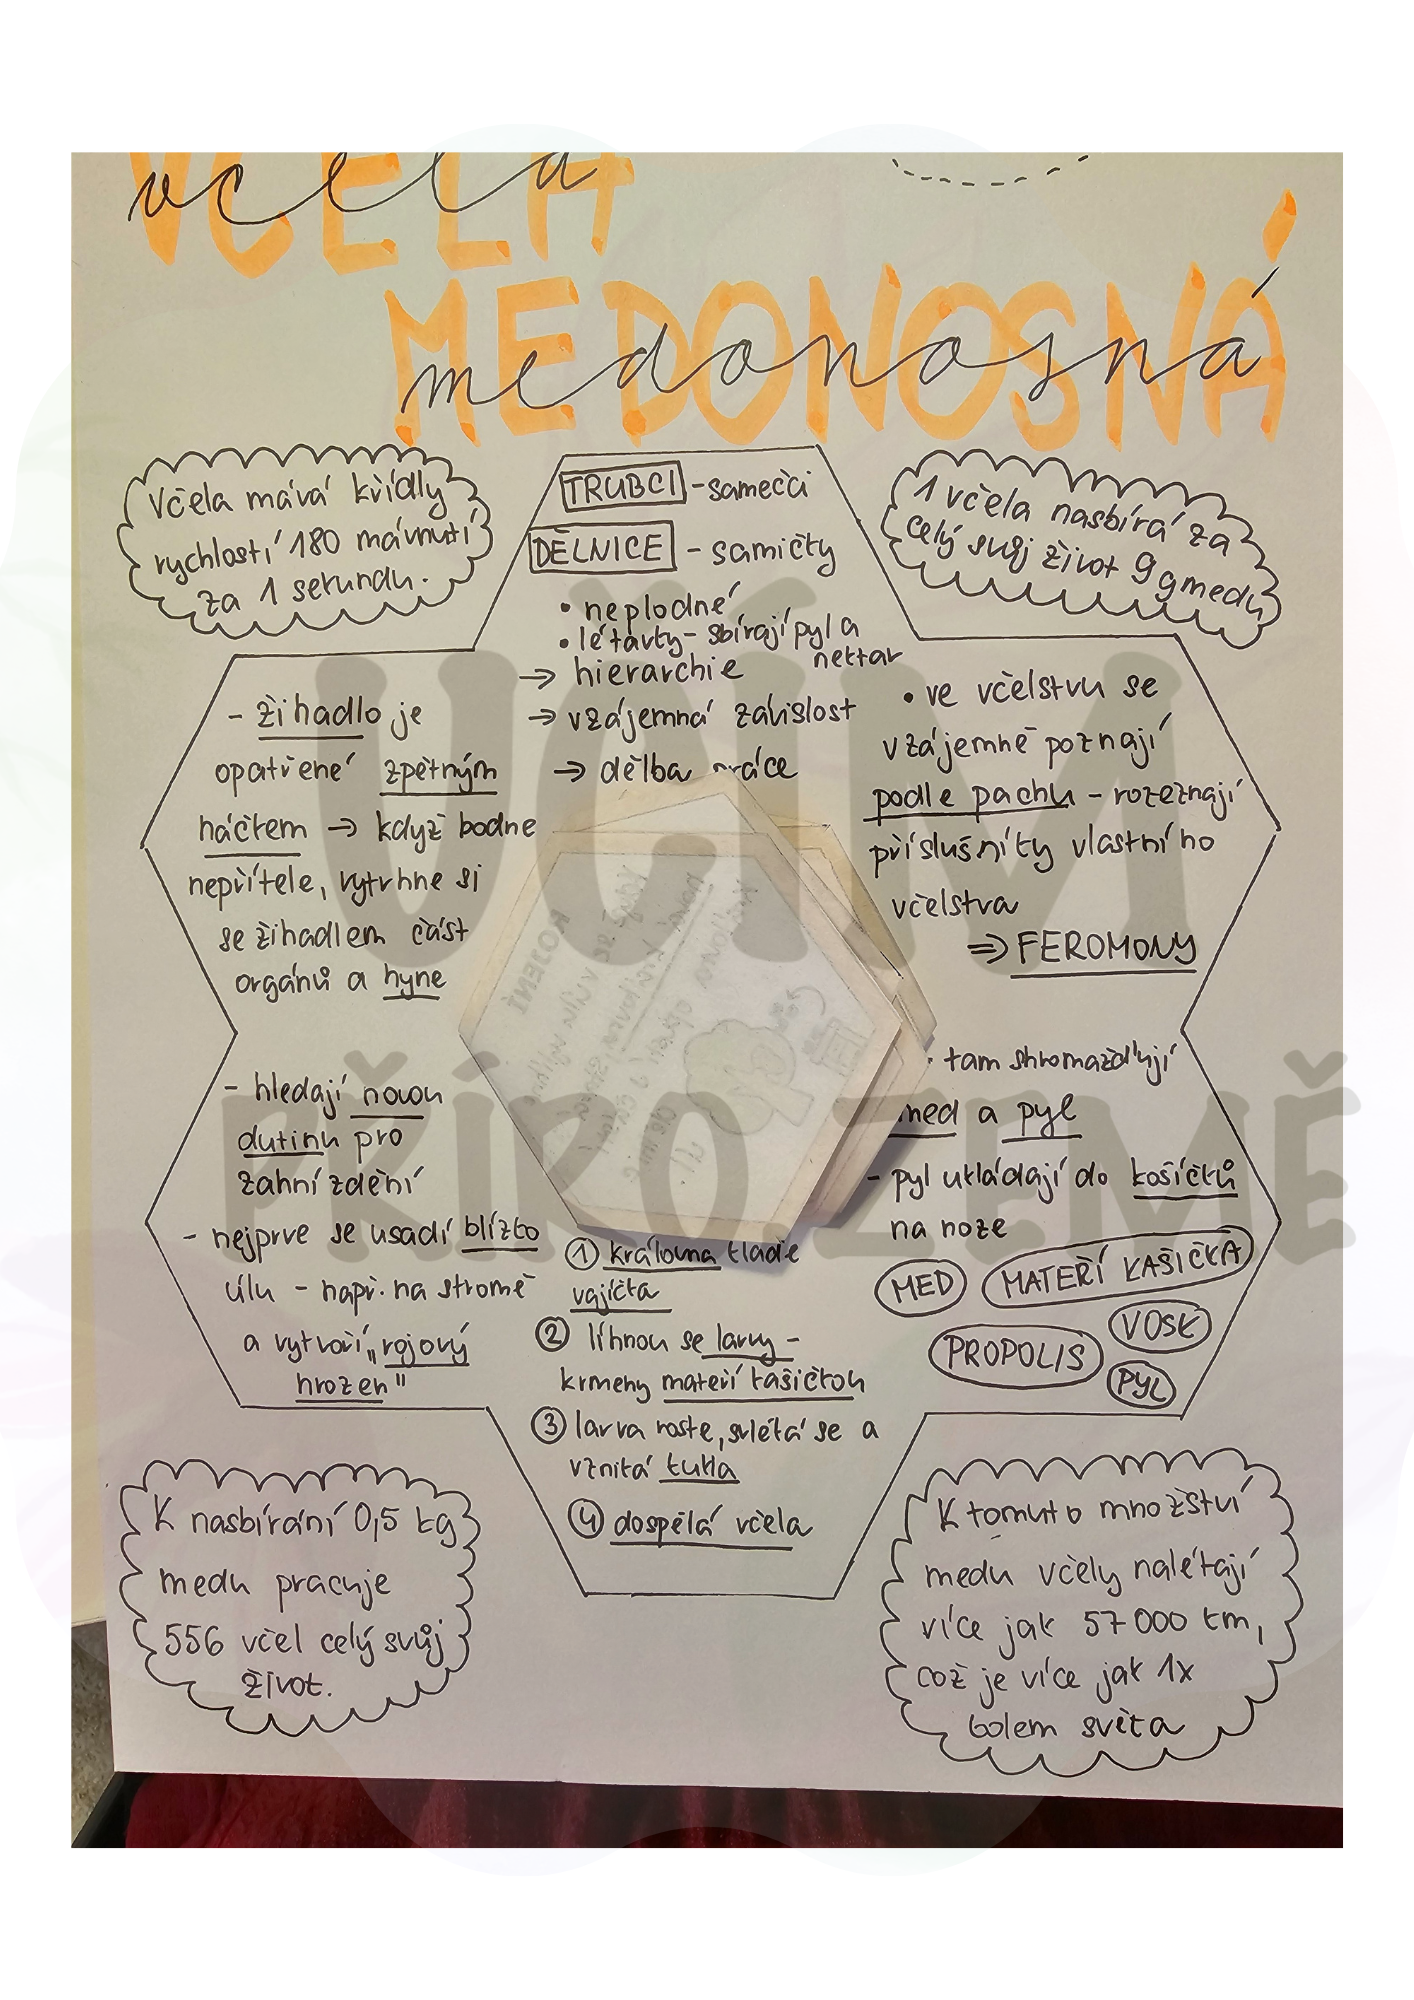 VČELA
včela
MEDONOSNÁ
medonosná
Včela mává křídly
rychlostí 180 mávnutí
za 1 sekundu.
TRUBCI - samečci
DĚLNICE - samičky
• neplodné
• létavky - sbírají pyl a
nektar
→ hierarchie
→ vzájemná závislost
→ dělba práce
1 včela nasbírá za
celý svůj život 9 g medu
- žihadlo je
opatřené zpětným
háčkem → když bodne
nepřítele, vytrhne si
se žihadlem část
orgánů a hyne
• ve včelstvu se
vzájemně poznají
podle pachu - rozeznají
příslušníky vlastního
včelstva
⇒ FEROMONY
- hledají novou
dutinu pro
zahnízdění
- nejprve se usadí blízko
úlu - např. na stromě
a vytvoří „rojový
hrozen"
• tam shromažďují
med a pyl
- pyl ukládají do košíčků
na noze
MED
MATEŘÍ KAŠIČKA
VOSK
PROPOLIS
PYL
① královna klade
vajíčka
② líhnou se larvy -
krmeny mateří kašičkou
③ larva roste, svléká se a
vzniká kukla
④ dospělá včela
K nasbírání 0,5 kg
medu pracuje
556 včel celý svůj
život.
K tomuto množství
medu včely nalétají
více jak 57 000 km,
což je více jak 1x
kolem světa
UČÍM
PŘÍRO.ZEMĚ